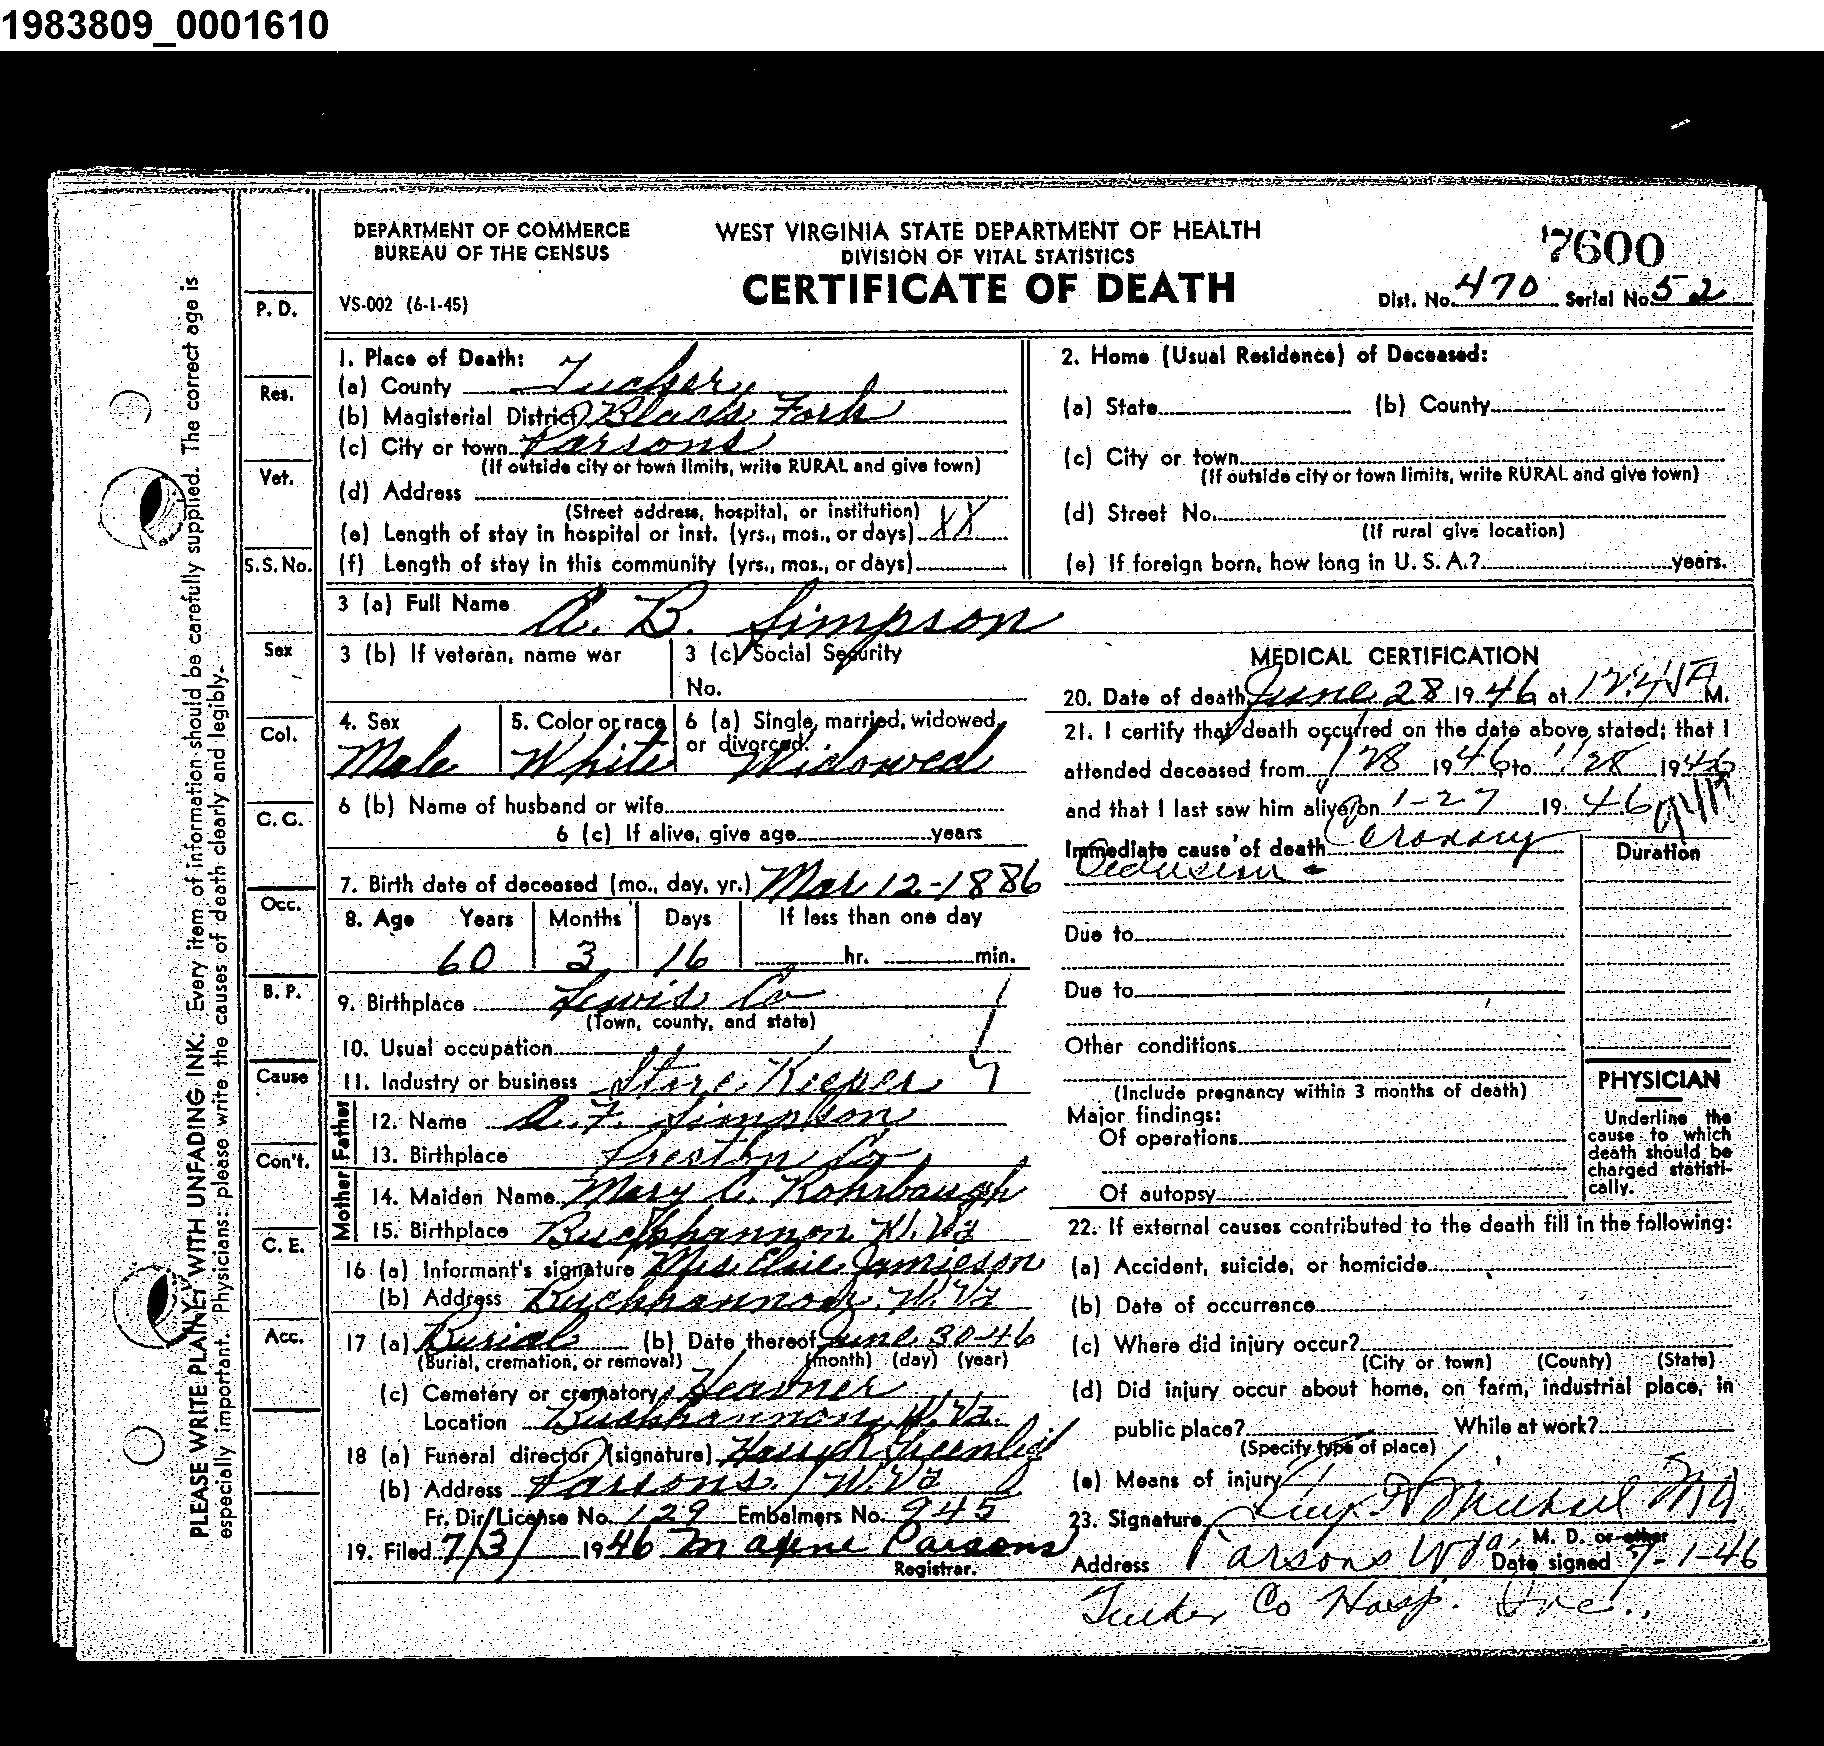 1983809_0001610
DEPARTMENT OF COMMERCE
BUREAU OF THE CENSUS
VS-002 (6-1-45)
WEST VIRGINIA STATE DEPARTMENT OF HEALTH
DIVISION OF VITAL STATISTICS
CERTIFICATE OF DEATH
7600
Dist. No. 470 Serial No. 52
PLEASE WRITE PLAINLY WITH UNFADING INK. Every item of information should be carefully supplied. The correct age is
especially important. Physicians: please write the causes of death clearly and legibly.
P. D.
Res.
Vet.
S.S. No.
Sex
Col.
C. C.
Occ.
B. P.
Cause
Con't.
C. E.
Acc.
1. Place of Death:
(a) County Tucker
(b) Magisterial District Black Fork
(c) City or town Parsons
(If outside city or town limits, write RURAL and give town)
(d) Address
(Street address, hospital, or institution)
(e) Length of stay in hospital or inst. (yrs., mos., or days) XX
(f) Length of stay in this community (yrs., mos., or days)
2. Home (Usual Residence) of Deceased:
(a) State (b) County
(c) City or town
(If outside city or town limits, write RURAL and give town)
(d) Street No.
(If rural give location)
(e) If foreign born, how long in U. S. A.? years.
3 (a) Full Name A. B. Simpson
3 (b) If veteran, name war
3 (c) Social Security
No.
4. Sex Male
5. Color or race White
6 (a) Single, married, widowed,
or divorced. Widowed
6 (b) Name of husband or wife
6 (c) If alive, give age years
7. Birth date of deceased (mo., day, yr.) Mar 12-1886
8. Age Years Months Days If less than one day
60 3 16 hr. min.
9. Birthplace Lewis Co
(Town, county, and state)
10. Usual occupation
11. Industry or business Store Keeper
Father
12. Name A. F. Simpson
13. Birthplace Preston Co
Mother
14. Maiden Name Mary C. Rohrbaugh
15. Birthplace Buckhannon W. Va
16 (a) Informant's signature Mrs Elsie Jamieson
(b) Address Buckhannon W. Va
17 (a) Burial (b) Date thereof June 30-46
(Burial, cremation, or removal) (month) (day) (year)
(c) Cemetery or crematory Heavner
Location Buckhannon, W. Va.
18 (a) Funeral director (signature)
(b) Address Parsons, W. Va
Fr. Dir. License No. 129 Embalmers No. 945
19. Filed 7/3/ 1946 Maxine Parsons
Registrar.
MEDICAL CERTIFICATION
20. Date of death June 28 1946 at 12:45A M.
21. I certify that death occurred on the date above stated; that I
attended deceased from 1 28 1946 to 1/28 1946
and that I last saw him alive on 1-27 19 46
Immediate cause of death Coronary
Occlusion
Duration
Due to
Due to
Other conditions
(Include pregnancy within 3 months of death)
Major findings:
Of operations
Of autopsy
PHYSICIAN
Underline the
cause to which
death should be
charged statisti-
cally.
22. If external causes contributed to the death fill in the following:
(a) Accident, suicide, or homicide
(b) Date of occurrence
(c) Where did injury occur?
(City or town) (County) (State)
(d) Did injury occur about home, on farm, industrial place, in
public place? While at work?
(Specify type of place)
(e) Means of injury
23. Signature Guy H Michael MD
M. D. or other
Address Parsons W Va. Date signed 7-1-46
Tucker Co Hosp. Inc.,